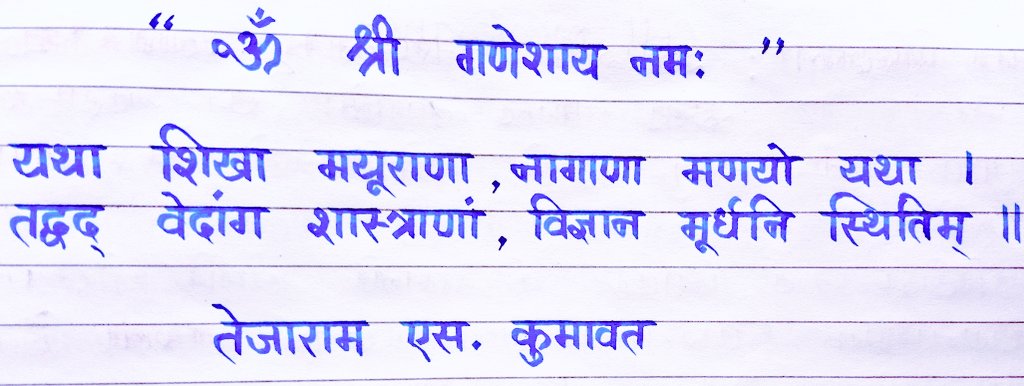 “ ॐ श्री गणेशाय नमः ”
यथा शिखा मयूराणा , नागाणा मणयो यथा ।
तद्वद् वेदांग शास्त्राणां , विज्ञान मूर्धनि स्थितिम् ॥
तेजाराम एस. कुमावत